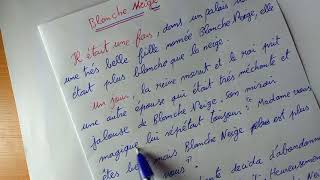 Blanche Neige
Il était une fois, dans un palais no
une très belle fille nommée Blanche Neige, elle
était plus blanche que la neige.
Un jour, la reine mourut et le roi prit
une autre épouse qui était très méchante et
jalouse de Blanche Neige. Son miroir
magique lui répétait toujours: " Madame vous
êtes be mais Blanche Neige est plus
vous".
décida d'abandonn
Heureusemen